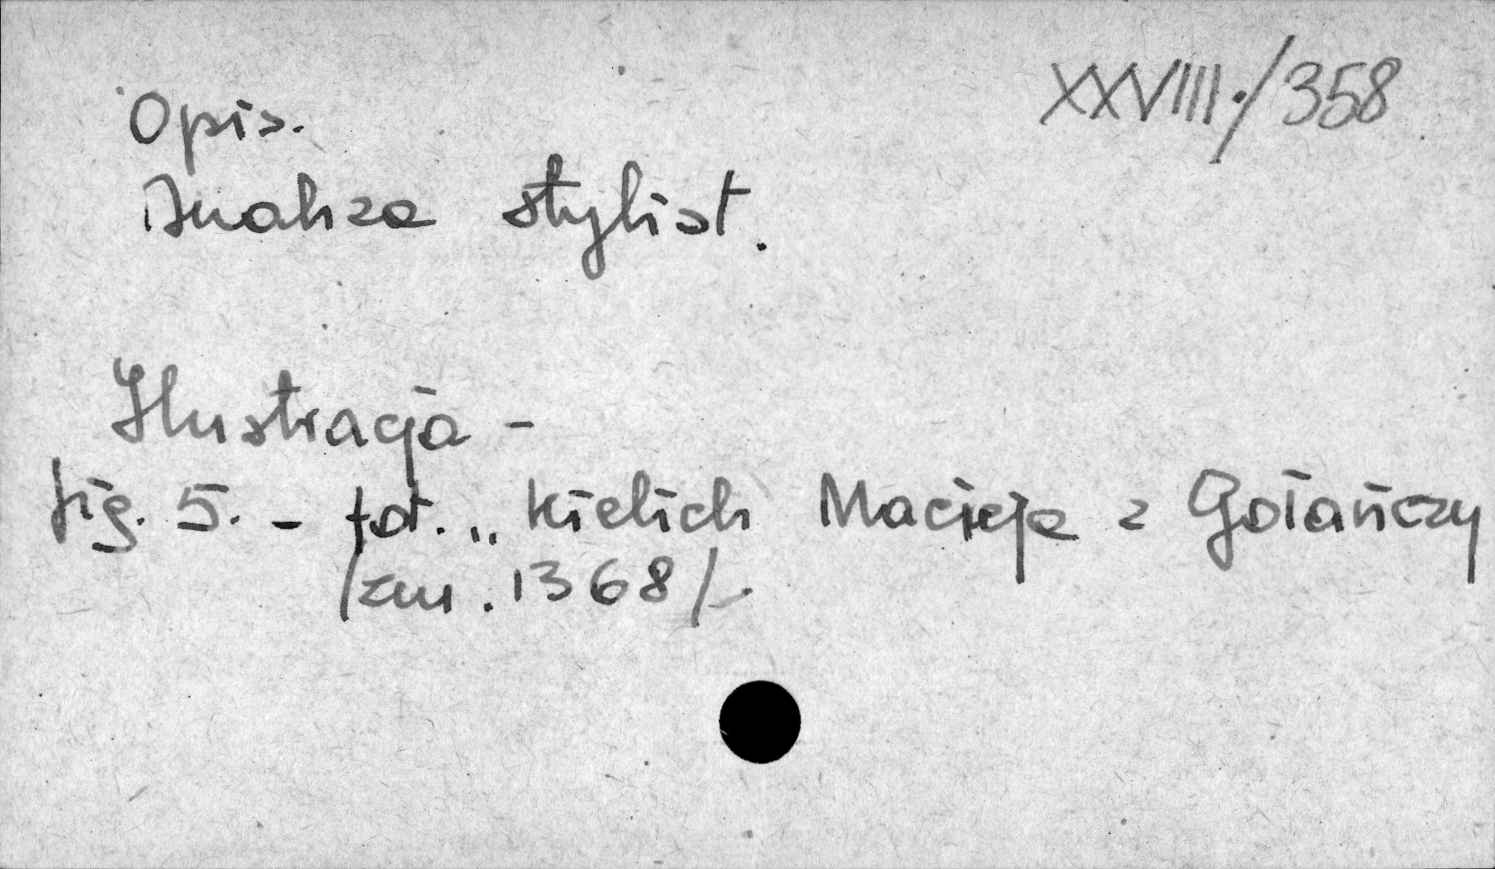 XXVIII./358
Opis.
Analiza stylist.
Ilustracja -
fig. 5. - fot. „ Kielich Macieja z Gołańczy
/zm. 1368/-.